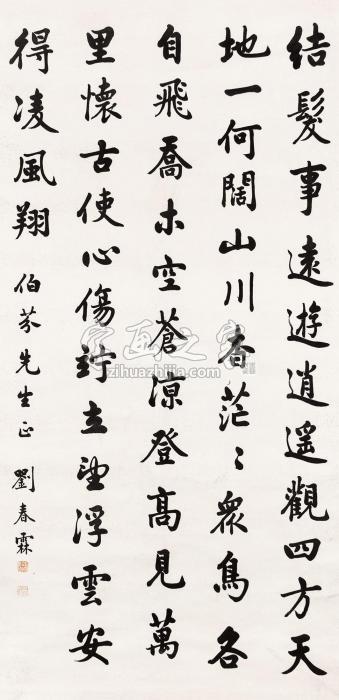 结髮事遠遊逍遥觀四方天
地一何闊山川杳茫〻衆鳥各
自飛喬木空蒼凉登高見萬
里懷古使心傷竚立望浮雲安
得凌風翔
伯芬先生正
劉春霖
字画之家
zihuazhijia.com